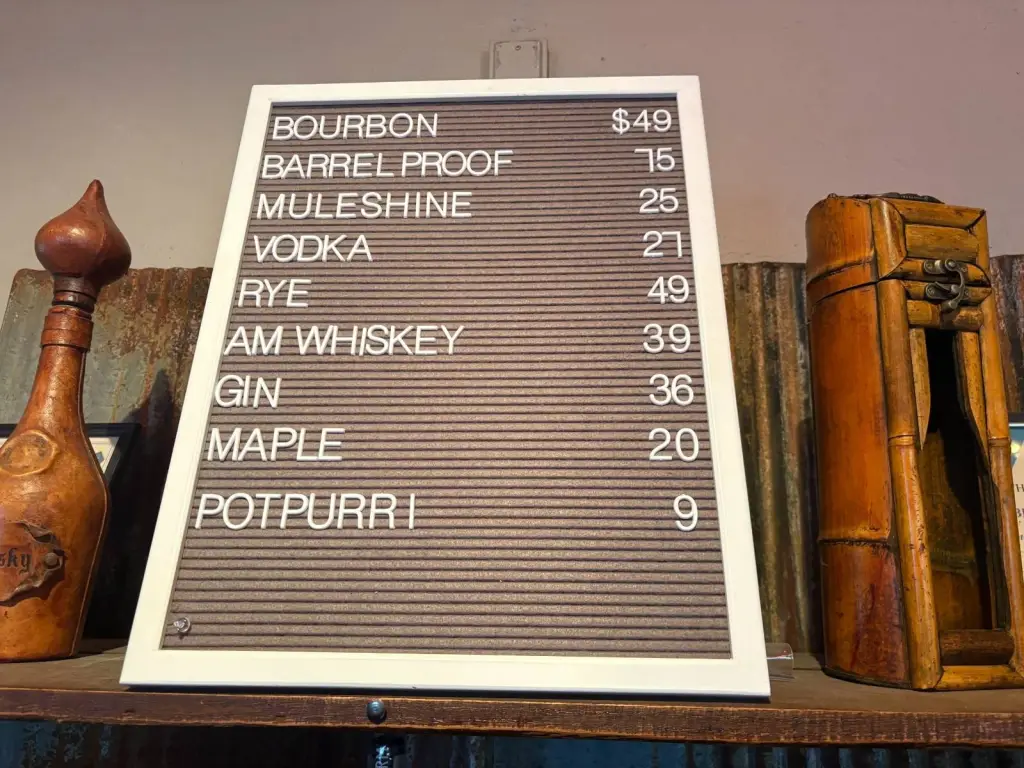 BOURBON $49
BARREL PROOF 75
MULESHINE 25
VODKA 27
RYE 49
AM WHISKEY 39
GIN 36
MAPLE 20
POTPURRI 9
sky